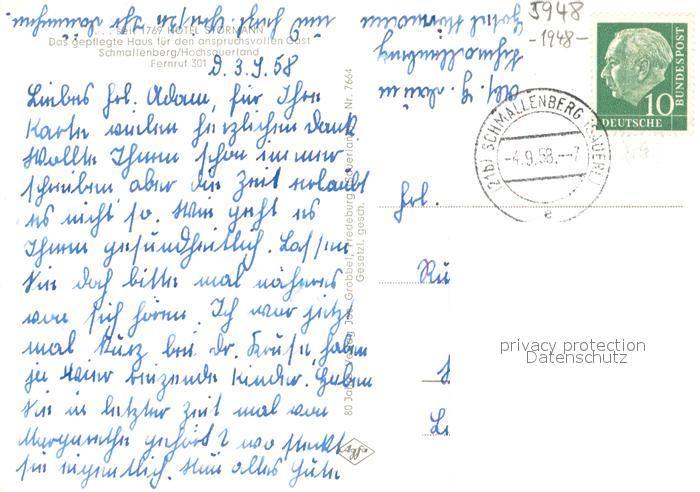 seit 1769 HOTEL STÖRMANN
Das gepflegte Haus für den anspruchsvollen Gast
Schmallenberg/Hochsauerland
Fernruf 301
D. 3.9.58
Liebes Frl. Adam, für Ihre
Karte vielen herzlichen Dank.
Wollte Ihnen schon immer
schreiben aber die Zeit erlaubt
es nicht so. Wie geht es
Ihnen gesundheitlich. Lassen
Sie doch bitte mal näheres
von sich hören. Ich war jetzt
mal kurz bei Dr. Kruse, haben
ja 4 reizende Kinder. Haben
Sie in letzter Zeit mal von
Margarethe gehört? wo steckt
sie eigentlich. Nun alles Gute
und
Hotel Störmann
Schmallenberg
80 Jahre Verlag Jos. Grobbel, Fredeburg Nr. 7664
Gesetzl. gesch.
Agfa
5948
-1948-
DEUTSCHE BUNDESPOST
10
(21b) SCHMALLENBERG (SAUERL)
-4.9.58.--7
e
Frl.
privacy protection
Datenschutz